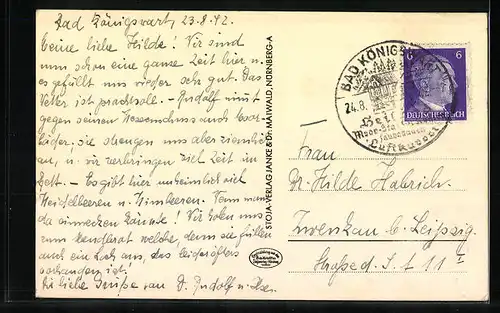 Bad Königswart, 23.8.42.
Meine liebe Hilde! Wir sind
nun schon eine ganze Zeit hier u.
es gefällt uns wieder sehr gut. Das
Wetter ist prachtvoll. - Rudolf nimt
gegen seinen
die strengen uns aber ziemlich
an, u. wir verbringen viel Zeit im
Bett. - Es gibt hier unheimlich viel
Heidelbeeren u. Himbeeren. Wenn man
da einwecken könnte! Wir holen uns
zum welche, denn sie füllen
auch ein Loch aus, das leider öfters
vorhanden ist.
liebe Grüße von D. Rudolf u. Ilse.
STOJA-VERLAG JANKE & Dr. MAIWALD, NÜRNBERG-A
BAD KÖNIGSWART
24.8.
Heil
Moor-
Luftkurort
6 6
DEUTSCHES REICH
Frau
Dr. Hilde Habrich.
Zwenkau b. Leipzig.
Straße d. S.A 11 I